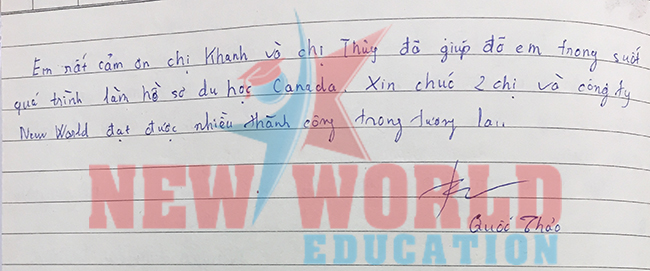 Em rất cảm ơn chị Khanh và chị Thủy đã giúp đỡ em trong suốt
quá trình làm hồ sơ du học Canada. Xin chúc 2 chị và công ty
New World đạt được nhiều thành công trong tương lai.
NEW WORLD
EDUCATION
Quốc Thảo